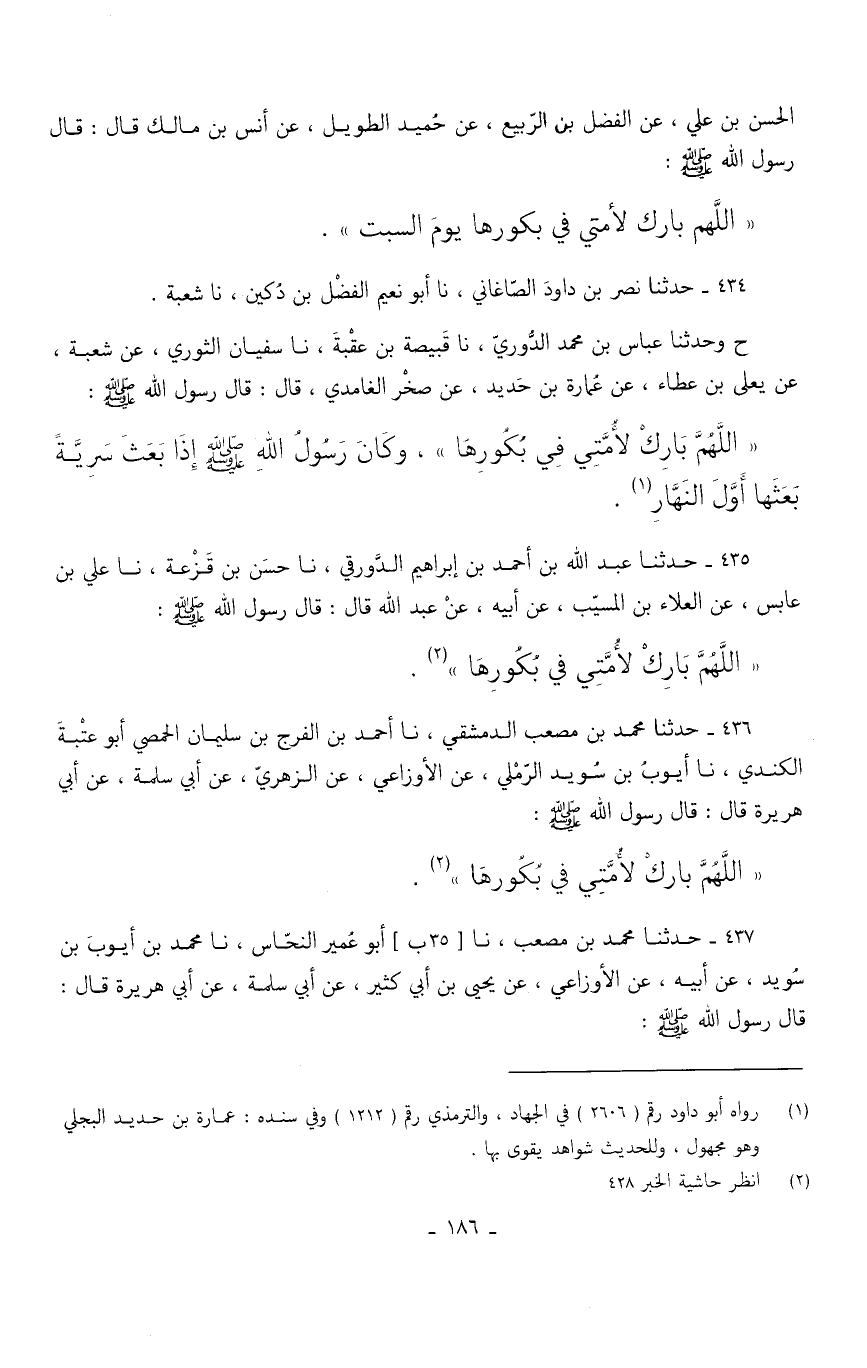 الحسن بن علي ، عن الفضل بن الرّبيع ، عن حُميد الطويل ، عن أنس بن مالك قال : قال
رسول الله ﷺ :
« اللَّهم بارك لأمتي في بكورها يومَ السبت » .
٤٣٤ ـ حدثنا نصر بن داودَ الصّاغاني ، نا أبو نعيم الفضْل بن دُكين ، نا شعبة .
ح وحدثنا عباس بن محمد الدُّوريّ ، نا قَبيصة بن عقْبةَ ، نا سفيان الثوري ، عن شعبة ،
عن يعلى بن عطاء ، عن عُمارة بن حَديد ، عن صخْر الغامدي ، قال : قال رسول الله ﷺ :
« اللَّهُمَّ بَارِكْ لأُمَّتِي فِي بُكُورِهَا » ، وكَانَ رَسُولُ اللهِ ﷺ إِذَا بَعَثَ سَرِيَّةً
بَعَثَها أَوَّلَ النَهَّارِ(١) .
٤٣٥ ـ حدثنا عبد الله بن أحمد بن إبراهيم الدَّورقي ، نا حسَن بن قَزْعة ، نا علي بن
عابس ، عن العلاء بن المسيّب ، عن أبيه ، عنْ عبد الله قال : قال رسول الله ﷺ :
« اللَّهُمَّ بَارِكْ لأُمَّتِي في بُكُورِهَا »(٢) .
٤٣٦ ـ حدثنا محمد بن مصعب الدمشقي ، نا أحمد بن الفرج بن سليمان الحمصي أبو عتْبةَ
الكندي ، نا أيوبُ بن سُويد الرّمْلي ، عن الأوزاعي ، عن الزهريّ ، عن أبي سلمة ، عن أبي
هريرة قال : قال رسول الله ﷺ :
« اللَّهُمَّ بارِكْ لأُمَّتِي في بُكُورِهَا »(٢) .
٤٣٧ ـ حدثنا محمد بن مصعب ، نا [ ٣٥ب ] أبو عُمير النحّاس ، نا محمد بن أيوبَ بن
سُويد ، عن أبيه ، عن الأوزاعي ، عن يحيى بن أبي كثير ، عن أبي سلمة ، عن أبي هريرة قال :
قال رسول الله ﷺ :
(١) رواه أبو داود رقم ( ٢٦٠٦ ) في الجهاد ، والترمذي رقم ( ١٢١٢ ) وفي سنده : عمارة بن حديد البجلي
وهو مجهول ، وللحديث شواهد يقوى بها .
(٢) انظر حاشية الخبر ٤٢٨
ـ ١٨٦ ـ